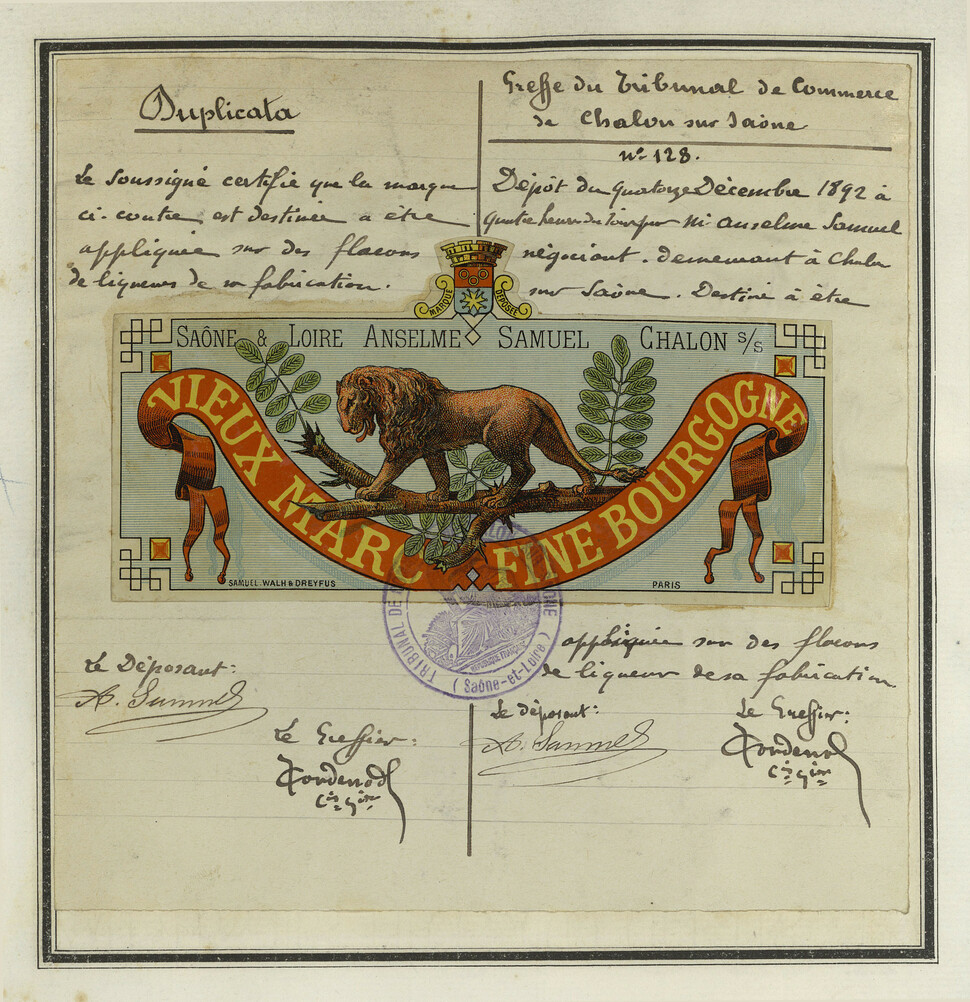 Duplicata
Le soussigné certifie que la marque
ci-contre est destinée a être
appliquée sur des flacons
de liqueurs de sa fabrication.
Greffe du Tribunal de Commerce
de Chalon sur Saône
n° 128.
Dépôt du quatorze Décembre 1892 à
quatre heures du soir par Mr Anselme Samuel
négociant. demeurant à Chalon
sur Saône. Destiné à être
MARQUE DÉPOSÉE
SAÔNE & LOIRE ANSELME SAMUEL CHALON S/S
VIEUX MARC FINE BOURGOGNE
SAMUEL. WALH & DREYFUS
PARIS
TRIBUNAL DE
(Saône-et-Loire)
appliquée sur des flacons
de liqueur de sa fabrication.
Le Déposant:
A. Samuel
Le Greffier:
Cis Gier
Le déposant:
A. Samuel
Le Greffier:
Cis Gier